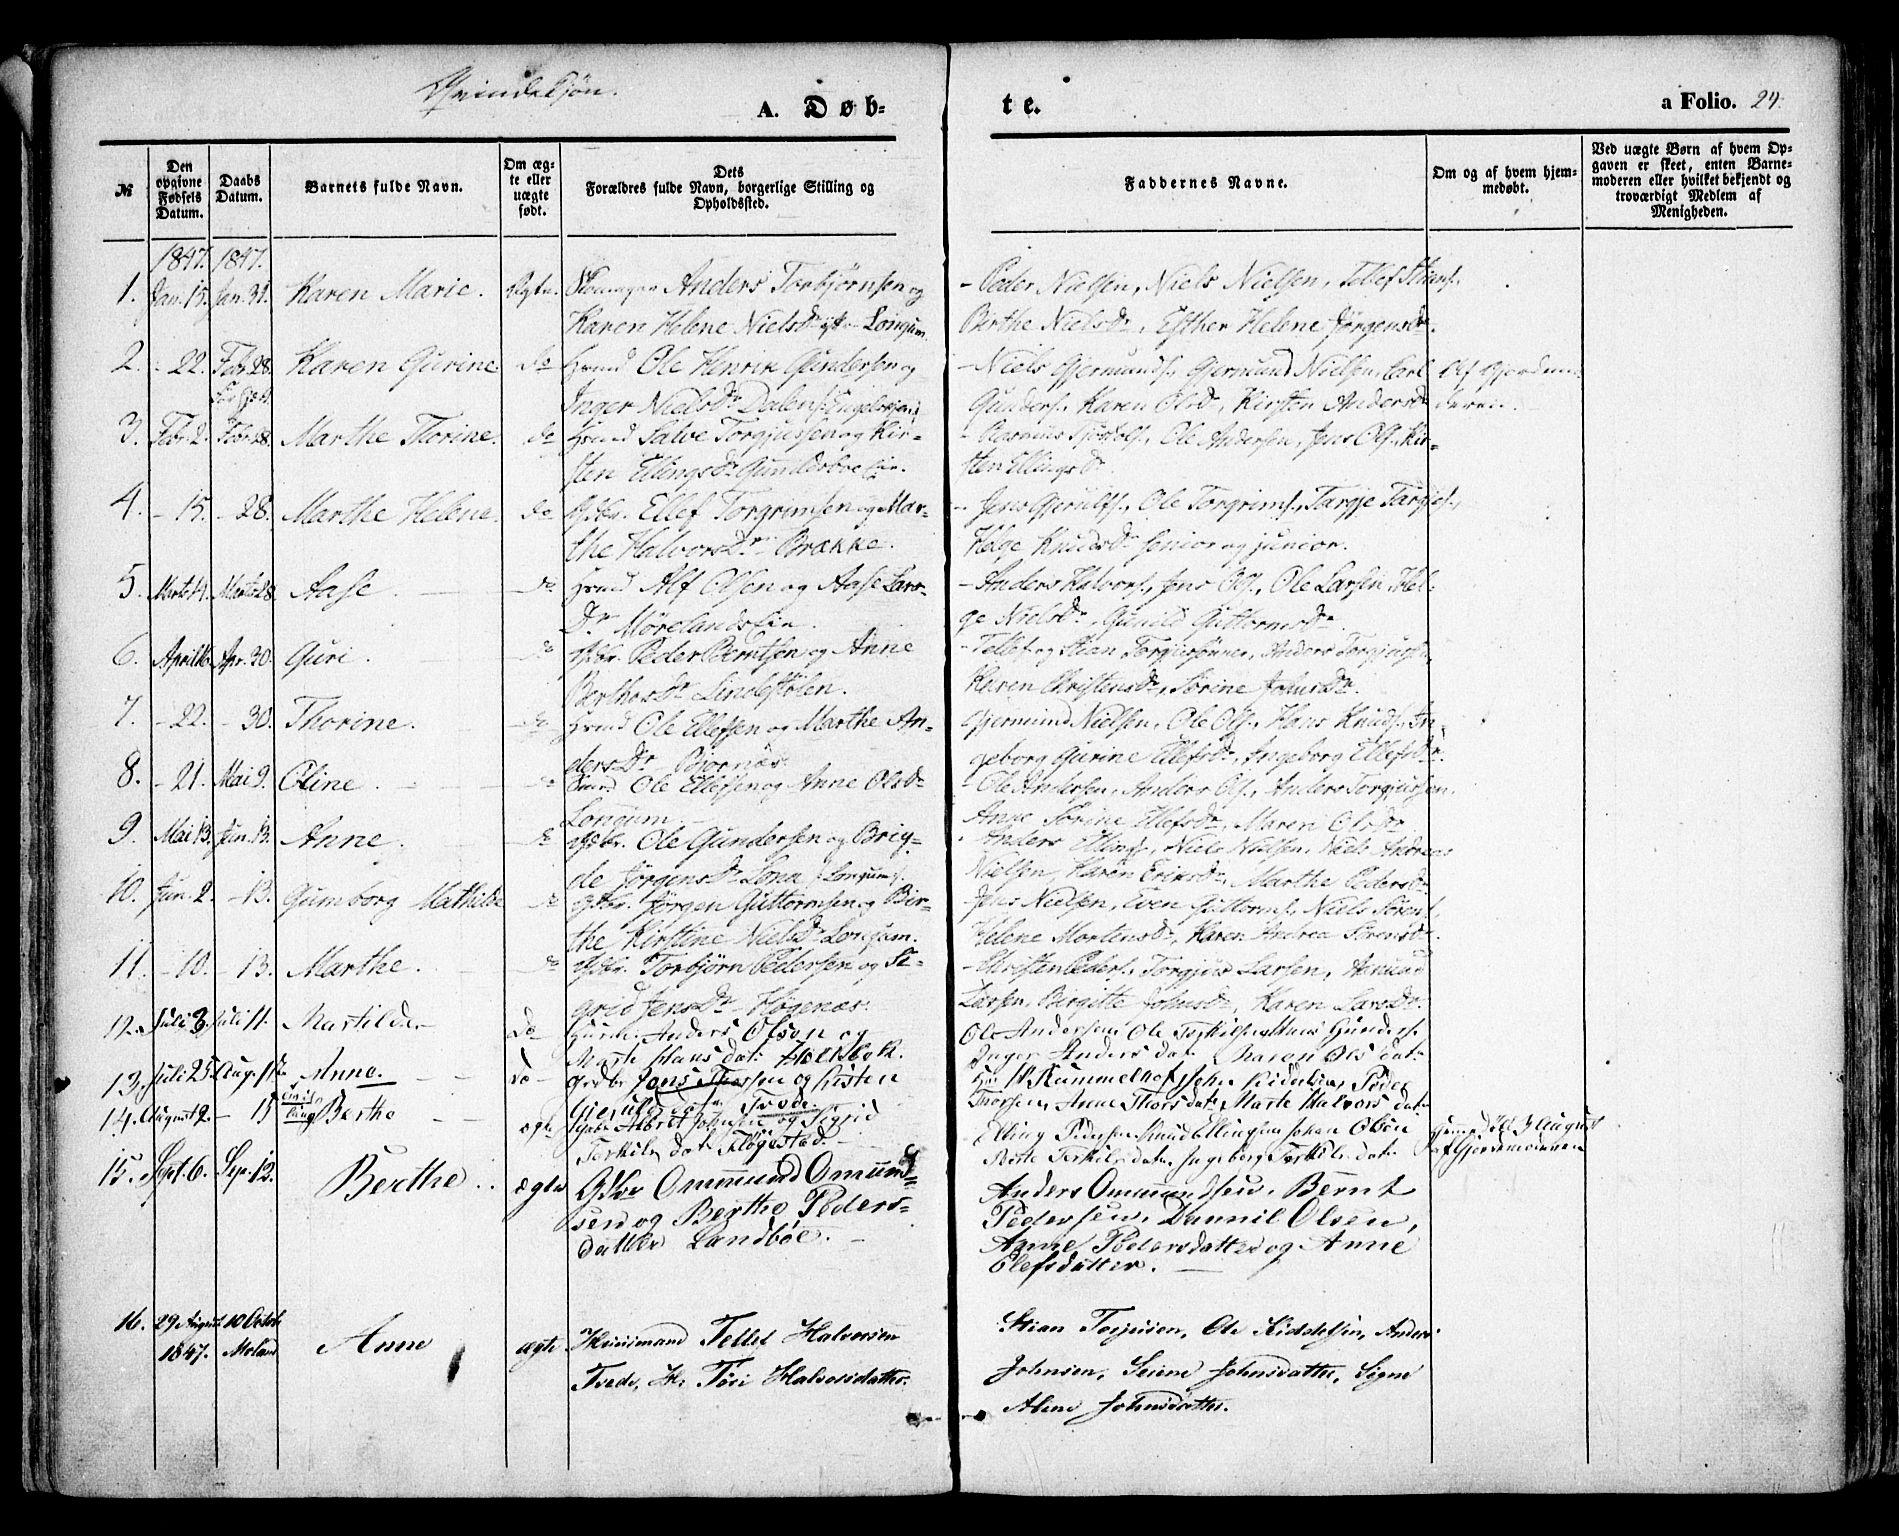 Qvindekjøn.
A. Døb-
te.
a Folio. 24.
№
Den opgivne Fødsels Datum.
Daabs Datum.
Barnets fulde Navn.
Om ægte eller uægte født.
Dets Forældres fulde Navn, borgerlige Stilling og Opholdssted.
Faddernes Navne.
Om og af hvem hjemmedøbt.
Ved uægte Børn af hvem Opgaven er skeet, enten Barnemoderen eller hvilket bekjendt og troværdigt Medlem af Menigheden.
1847. 1847.
1. Jan. 15. Jan. 31. Karen Marie. Ægte. Anders Torbjørnsen og
Karen Helene Nielsdr Longum
- Peder Nielsen, Niels Nielsen, Tellef Stians.
Berthe Nielsdr, Esther Helene Jørgensdr.
2. - 22. Febr. 28. Karen Gurine do Hsmd Ole Henrik Gundersen og
Inger Nielsdr Dalen
- Niels Gjermunds., Gjermund Nielsen, Carl Af Gjordemo-
Gunders., Karen Olsdr, Kirsten Andersdr deren.
3. Febr. 2. Febr. 28. Marthe Thorine. do Hsmd Salve Torgjussen og Kir-
sten Ellingsdr Gunildsboe Eie.
- Rasmus Tjostols., Ole Andersen, Jens Ols., Kir-
sten Ellingsdr
4. - 15. - 28. Marthe Helene. do Gbr. Ellef Torgrimsen og Mar-
the Halvorsdr Brække.
- Jens Gjerulfs., Ole Torgrims., Targje Targjes.,
Helge Knudsdr senior og junior.
5. Marts 4. Marts 28. Aase. do Hsmd Alf Olsen og Aase Lars-
dr Mørelandseie.
- Anders Halvors., Jens Ols., Ole Larsen, Hel-
ge Nielsdr, Gunild Guttormsdr
6. April 16. Apr. 30. Guri. do Gbr. Peder Berntsen og Anne
Berthesdr Lindestølen.
- Tellef og Stian Torgjussønner, Anders Torgjussen,
Karen Christensdr, Sørine Johnsdr.
7. - 22. - 30. Thorine. do Hsmd Ole Ellefsen og Marthe An-
dersdr Bjornæs.
Gjermund Nielsen, Ole Ols., Hans Knuds., In-
geborg Gurine Ellefsdr, Ingeborg Ellefsdr.
8. - 21. Mai 9. Oline. do Hsmd Ole Ellefsen og Anne Olsdr
Longum.
- Ole Andersen, Anders Ols., Anders Torgjussen,
Anne Sørine Ellefsdr, Maren Olsdr
9. Mai 13. Jun. 13. Anne. do Gbr. Ole Gundersen og Brig-
de Jørgensdr Lona (Longum).
- Anders Ellings., Niels Nielsen, Niels Andreas
Nielsen, Karen Eriksdr, Marthe Pedersdr
10. Jun. 2. - 13. Gumborg Mathilde do Gbr. Jørgen Guttormsen og Bir-
the Kirstine Nielsdr Longum.
- Jens Nielsen, Even Guttorms., Niels Sørens.,
Helene Mortensdr, Karen Andrea Sørensdr.
11. - 10. - 13. Marthe. do Gbr. Torbjørn Pedersen og Si-
grid Jensdr Høgenæs.
- Christen Peders., Torgjus Larsen, Asmund
Larsen, Birgitte Johnsdr, Karen Larsdr.
12. Juli 3. Juli 11. Mathilde do Anders Olson og
Marte Hansdat.
Ole Andersen Ole Terkilsen Hans Gunders.
Inger Andersdat. Maren Olsdat.
13. Juli 25. Aug. 15. Anne. do Grdbr Jens Thorsen og Kisten
Gierulfsdatr Tvede.
H. Rummelhof, John Pedersen, Peder
Thorsen, Anne Thorsdat. Marte Halvorsdat.
14. August 2. - 15 Berthe ægte Albret Johnsen og Sigrid
Terkilsdat. Fløgestad.
Elling Pedersen Knud Ellingsen Johan Olsen
Berte Terkilsdat. Ingeborg Terkilsdat. 3 August
af Gjordemoderen
15. Sept. 6. Sep. 12. Berthe. ægte Gdbr Ommund Omund-
sen og Berthe Peders-
datter Landbøe.
Anders Ommundsen, Bernt
Pedersen, Danniel Olsen,
Anne Pedersdatter og Anne
Olefsdatter.
16. 29 August 1847. 10 Octobr Moland Anne ægte. Huusmand Tellef Halvorsen
Tvede, H. Tøri Halvorsdatter.
Stian Torjusen, Ole Kiddelsen, Anders
Johnsen, Seiene Johnsdatter, Signe
Alene Johnsdatter.